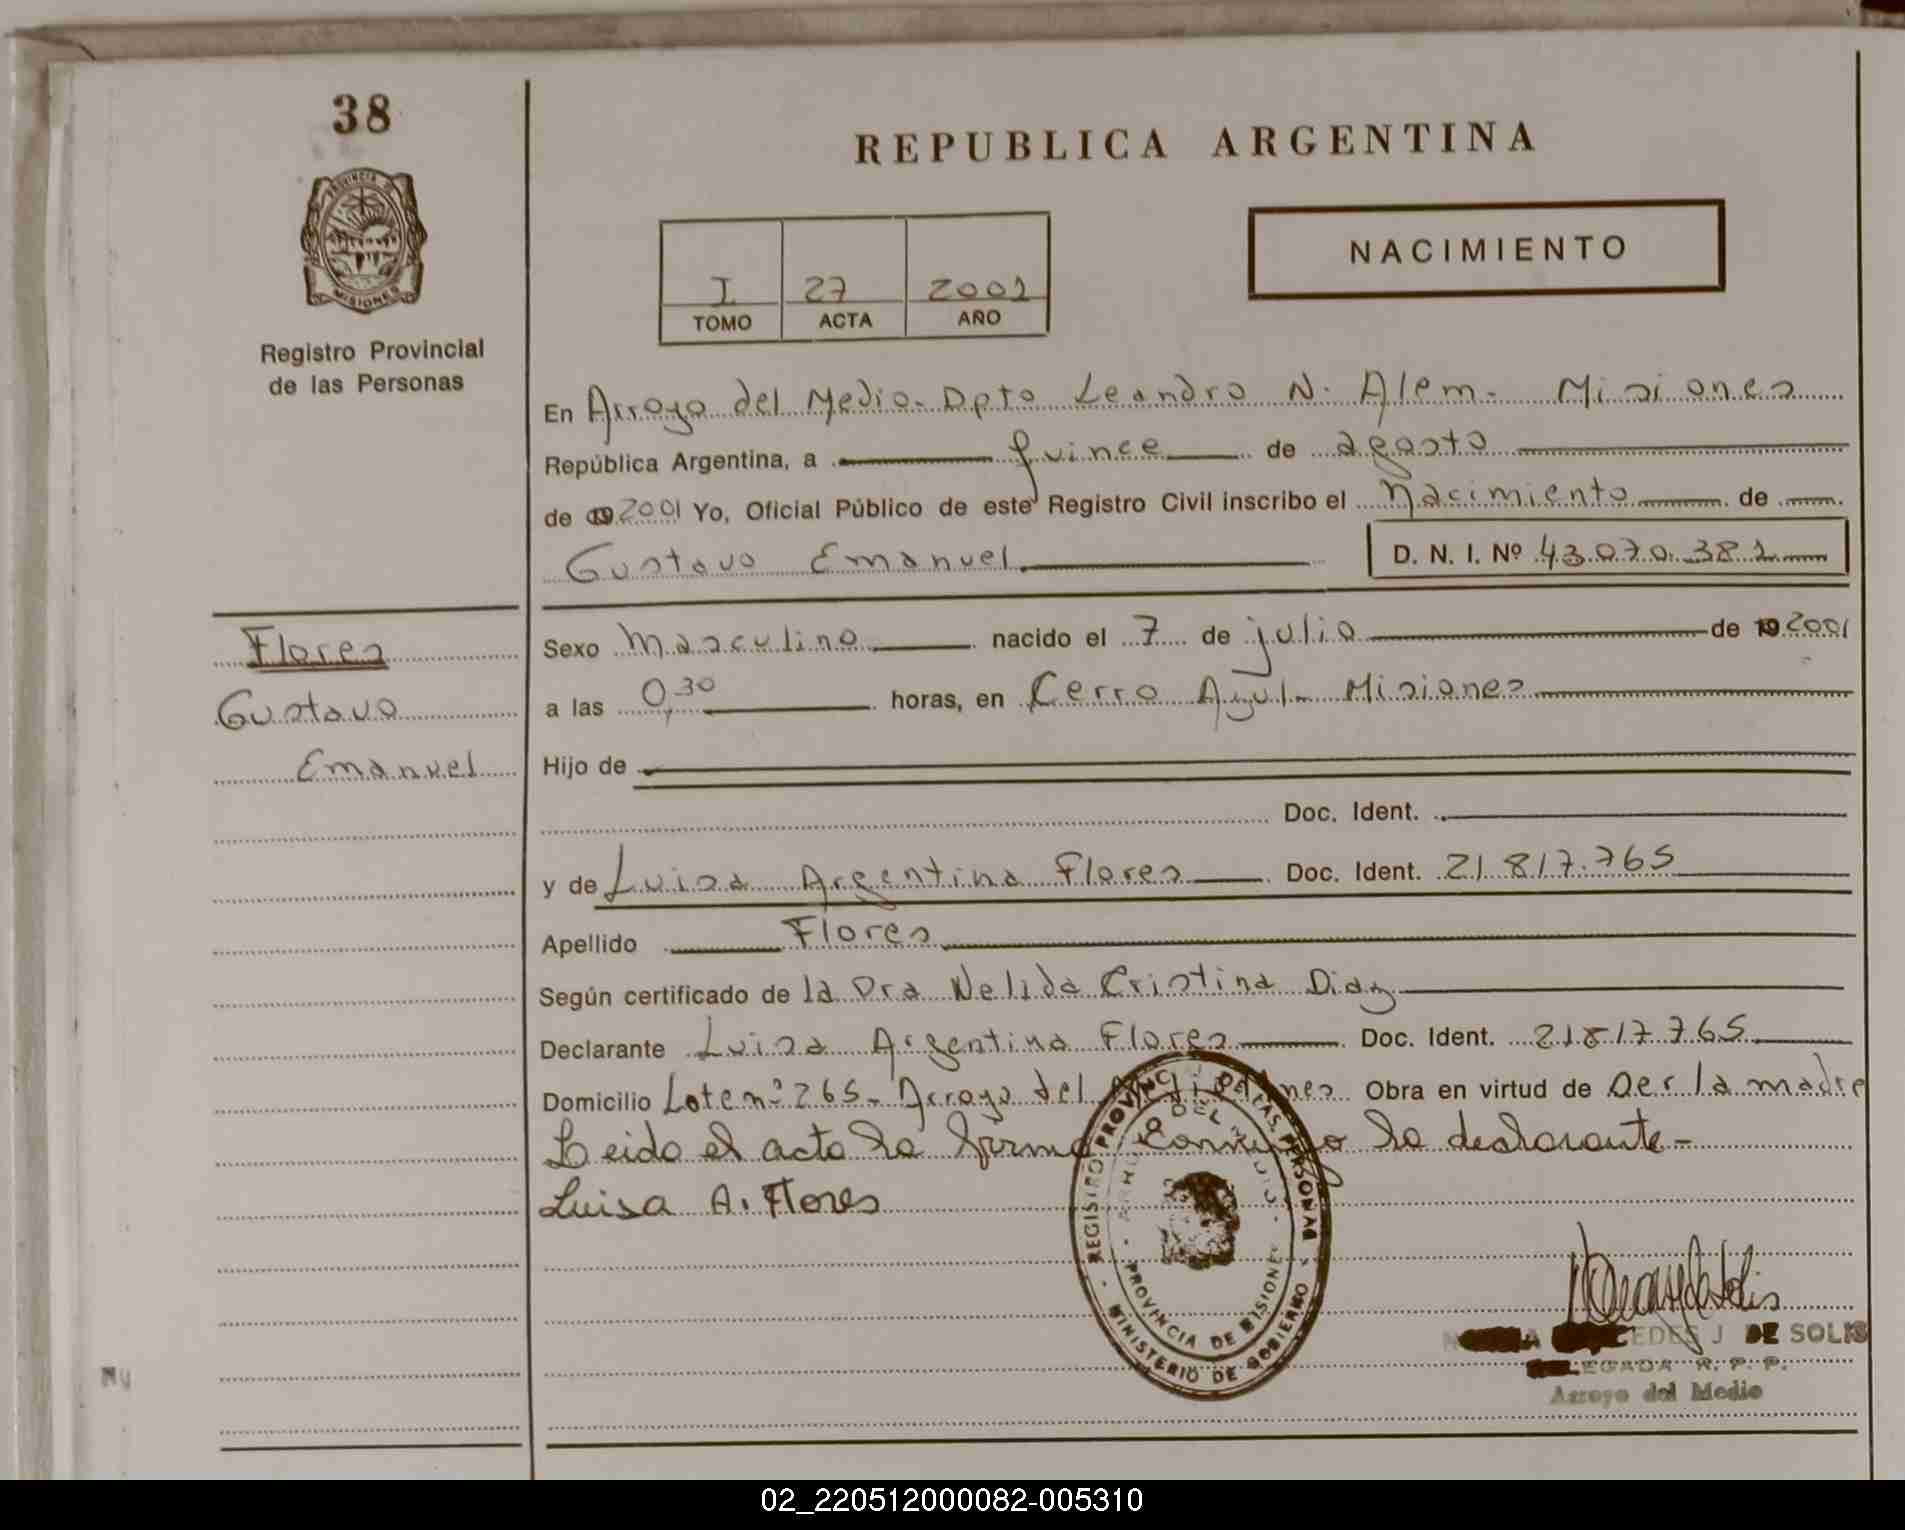 38
PROVINCIA DE
MISIONES
Registro Provincial
de las Personas
REPUBLICA ARGENTINA
NACIMIENTO
I 27 2001
TOMO ACTA AÑO
En Arroyo del Medio - Dpto Leandro N. Alem - Misiones
República Argentina, a quince de agosto
de 19 2001 Yo, Oficial Público de este Registro Civil inscribo el Nacimiento de
Gustavo Emanuel D. N. I. Nº 43.070.381
Flores
Gustavo
Emanuel
Sexo Masculino nacido el 7 de julio de 19 2001
a las 0,30 horas, en Cerro Azul - Misiones
Hijo de
Doc. Ident.
y de Luisa Argentina Flores Doc. Ident. 21.817.765
Apellido Flores
Según certificado de la Dra Nelida Cristina Diaz
Declarante Luisa Argentina Flores Doc. Ident. 21817765
Domicilio Lote nº 265 - Arroyo del Obra en virtud de ser la madre
Leida el acta la firma conmigo la declarante -
Luisa A. Flores
REGISTRO PROVINCIAL DE LAS PERSONAS
MINISTERIO DE GOBIERNO
PROVINCIA DE MISIONES
J DE SOLIS
R. P. P.
Arroyo del Medio
02_220512000082-005310